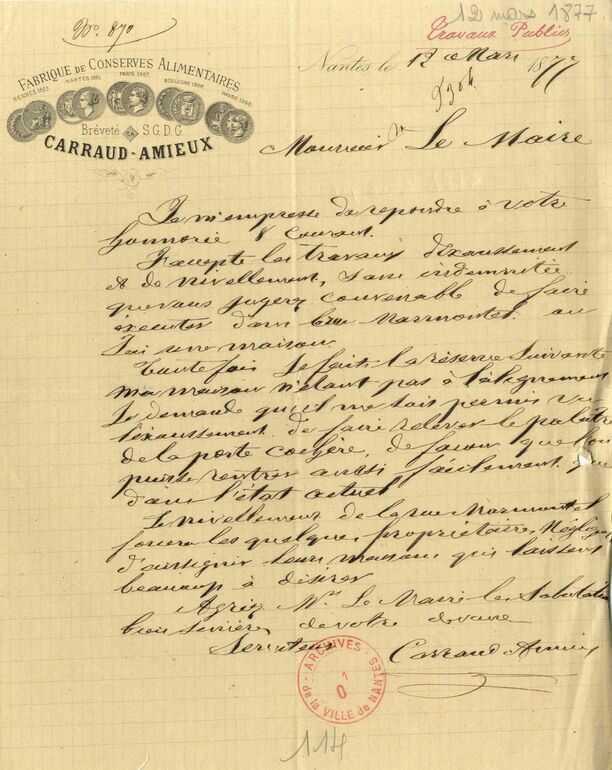 No. 870
12 mars 1877
Travaux Publics
FABRIQUE DE CONSERVES ALIMENTAIRES
RENNES 1853
NANTES 1861
PARIS 1867
BOULOGNE 1866
HAVRE 1868
Bréveté S.G.D.G
CARRAUD-AMIEUX
Nantes le 12 Mars 1877
Monsieur Le Maire
Je m'empresse de repondre à votre
honnorée 8 courant.
J'accepte les travaux d'exaussement
et de nivellement, sans indemnitée
que vous jugerez convenable de faire
exécuter dans la rue Marmontel. ou
J'ai une maison.
Toute fois Je fais la réserve suivante
ma maison n'étant pas à l'alignement
Je demande qu'il me sois permis vu
l'exaussement de faire relever le
de la porte cochère, de façon que l'on
puisse rentrer aussi facilement que
dans l'état actuel
Le nivellement de la rue Marmontel
forcera les quelques propriétaires
d'assigner leurs maisons qui laissent
beaucoup à désirer
Agréez Mr. Le Maire les Salutations
bien sincères de votre dévoué
Serviteur
Carraud Amieux
ARCHIVES
de la VILLE de NANTES
1
0
114